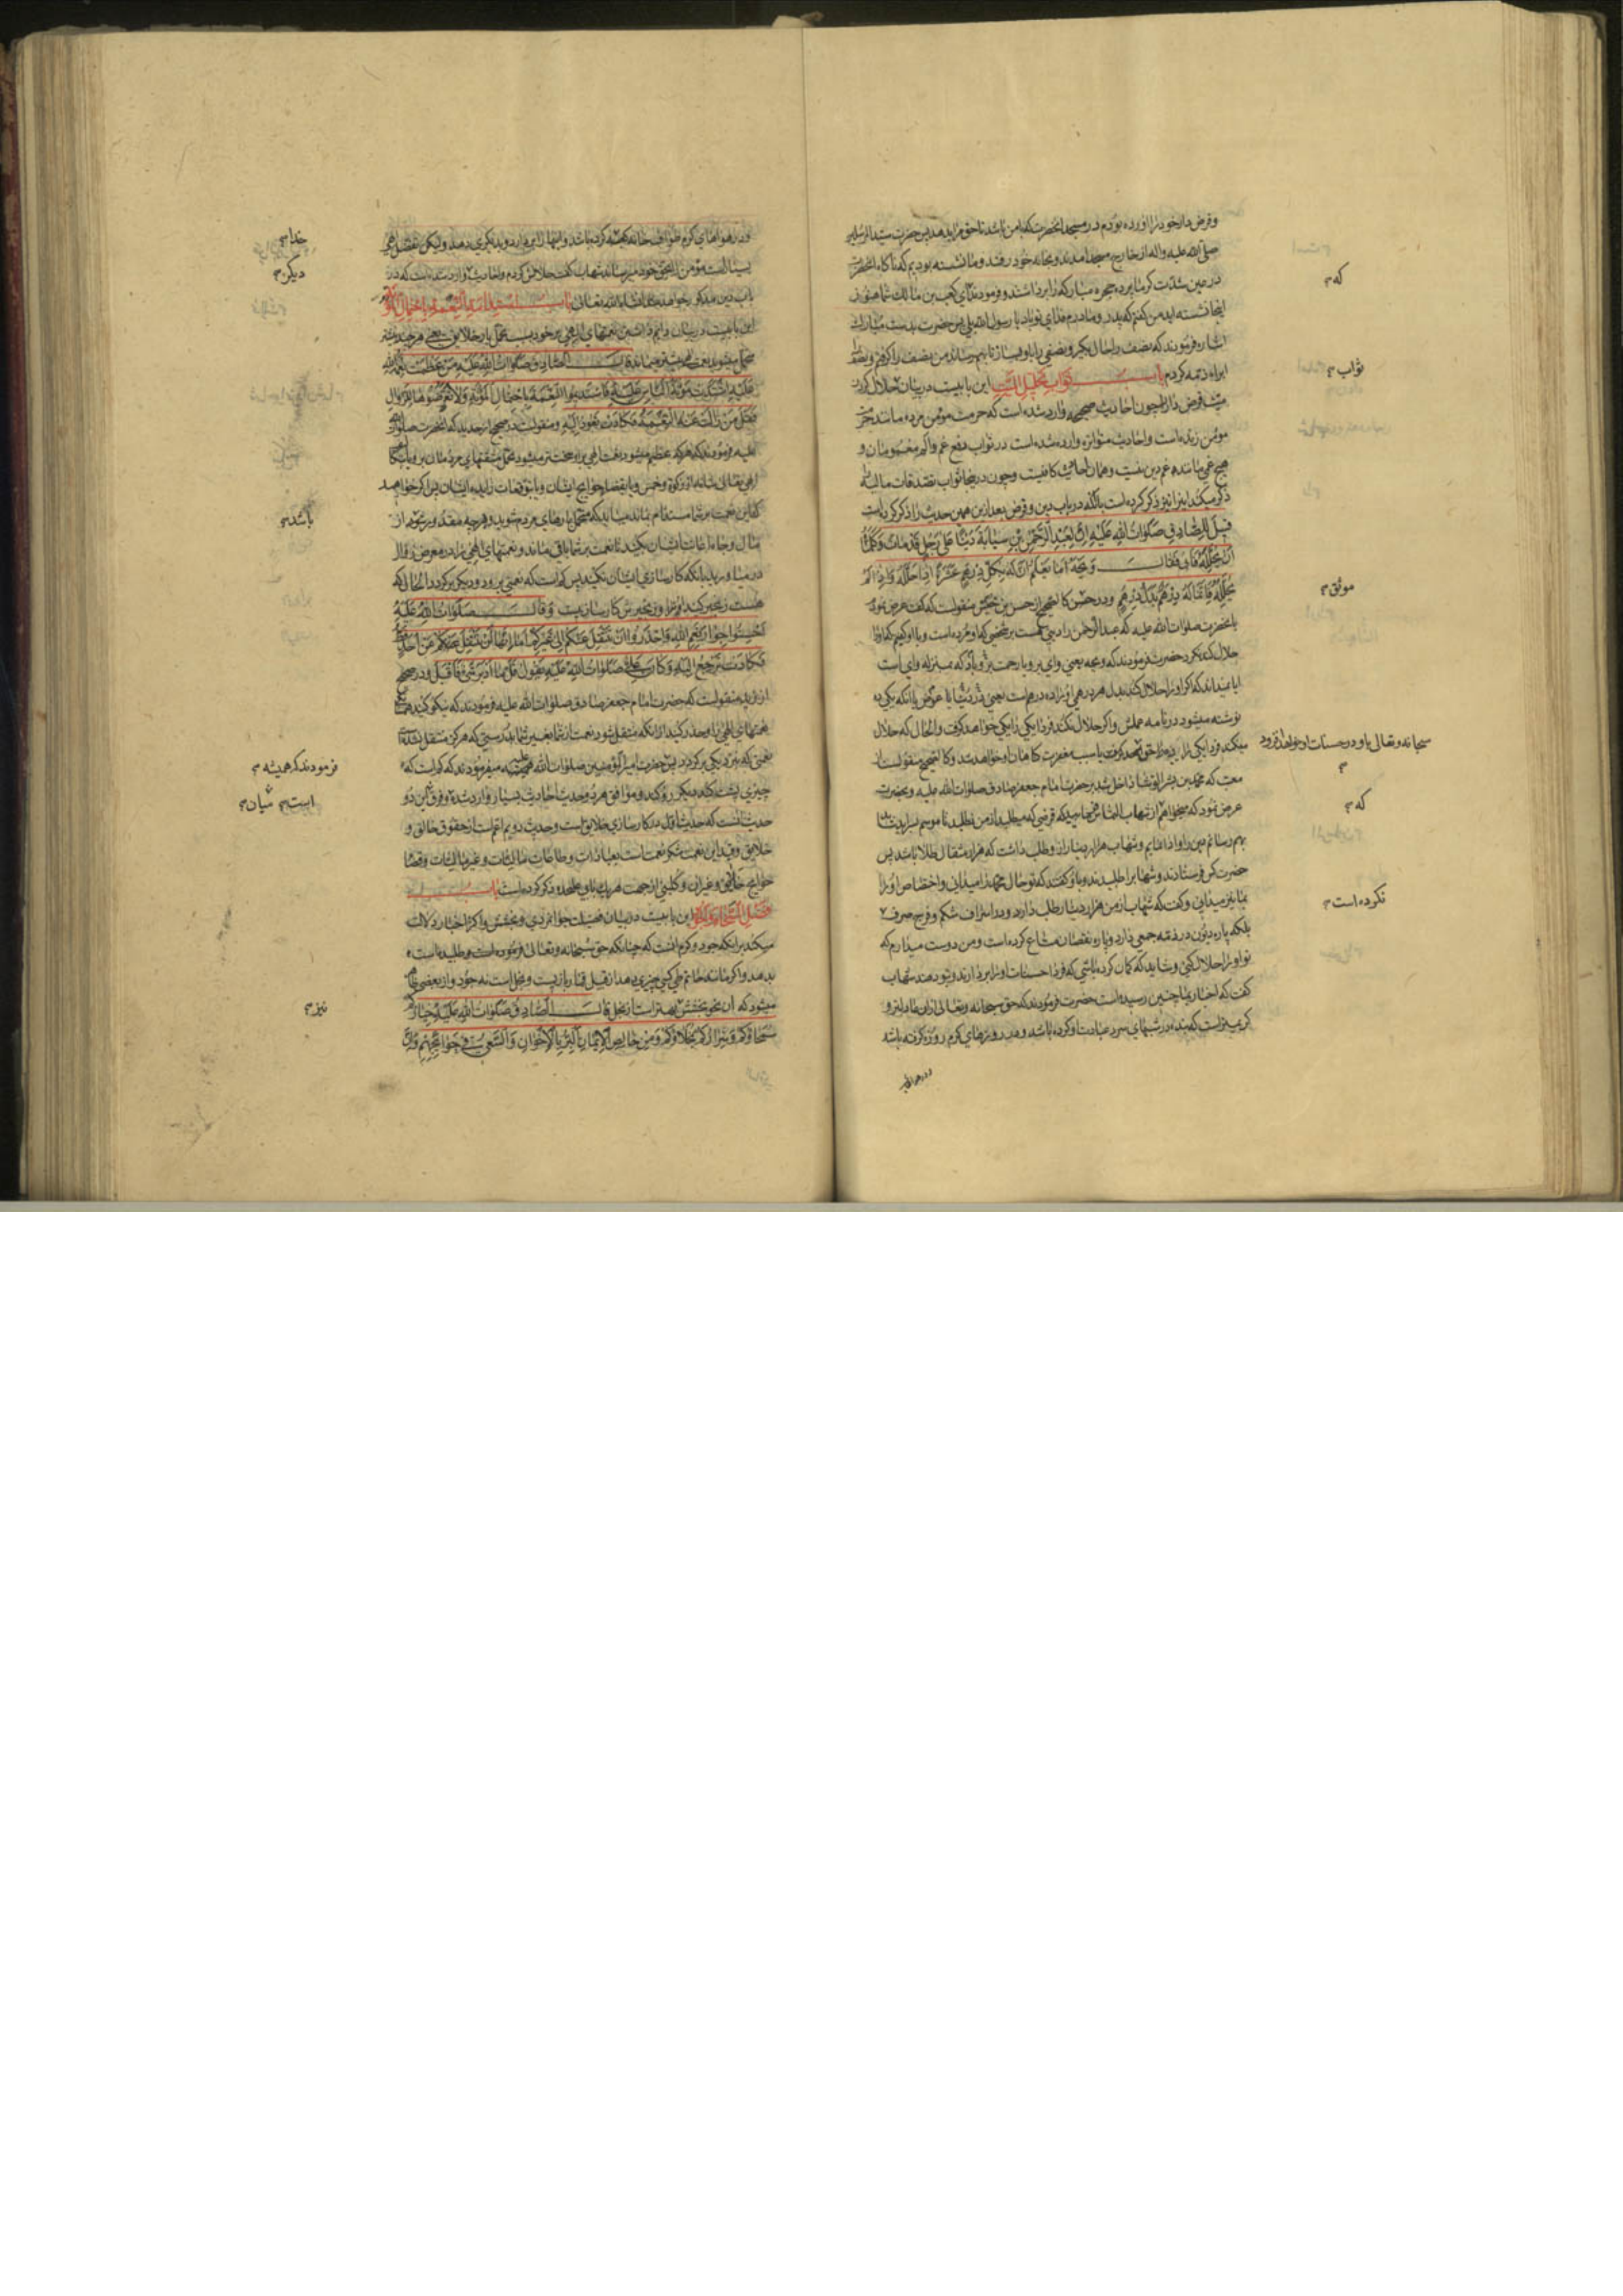 و قرض دار خود را آورده بودم در مسجد آنحضرت که با من باشد تا حق مرا بدهد پس حضرت سید المرسلین
صلی الله علیه و اله از خارج مسجد آمدند و بخانه خود رفتند و ما نشسته بودیم که ناگاه آنحضرت
در عین شدت گرما پرده حجره مبارکه را برداشتند و فرمودند ای کعب بن مالک شما هنوز
اینجا نشسته اید من گفتم که پدر و مادرم فدای تو باد یا رسول الله بلی پس حضرت بدست مبارک
اشاره فرمودند که نصف را حال بگیر و نصفی را باو بساز تا بهم رساند من نصف را گرفتم و نصف را
ابراء ذمه کردم باب ثواب تحلیل المیت این بابیست در بیان حلال کردن
میت قرض دار را چون احادیث صحیحه وارد شده است که حرمت مؤمن مرده مانند حرمت
مؤمن زنده است و احادیث متواتره وارد شده است در ثواب دفع غم و الم مغمومان و
هیچ غمی مانند غم دین نیست و همان احادیث کافیست و چون در اینجا ثواب تصدقات مالیه را
ذکر میکند اینرا نیز ذکر کرده است با آنکه در باب دین و قرض بعد ازین همین حدیث را ذکر کرده است
قیل للصادق صلوات الله علیه ان لعبد الرحمن بن سیابة دینا علی رجل قد مات و کلمناه
ان یحلله فابی فقال ویحه اما یعلم ان له بکل درهم عشرة اذا حلله و اذا لم
یحلله فانما له درهم بدل درهم و در حسن کالصحیح از حسن بن خنیس منقولست که گفت عرض نمودم
بآنحضرت صلوات الله علیه که عبد الرحمن را دینی هست بر شخصی که او مرده است و با او گفتیم که او را
حلال کند نکرد حضرت فرمودند که ویحه یعنی وای برو یا رحمت برو باد که بمنزله وای است
آیا نمیداند که اگر او را حلال کند بدل هر درهمی او را ده درهم است یعنی در دنیا یا عوض یا آنکه یکی ده
نوشته میشود در نامه عملش و اگر حلال نکند فردا یکی را یکی خواهد گرفت و الحال که حلال
میکند فردا یکی را
معتب که محمد بن بشر الوشا داخل شد بر حضرت امام جعفر صادق صلوات الله علیه و بحضرت
عرض نمود که میخواهم از شهاب التماس نمایید که قرضی که میطلبد از من نطلبد تا موسم
بهم رسانم من او ادا نمایم و شهاب هزار دینار ازو طلب داشت که هزار مثقال طلا باشد پس
حضرت کس فرستادند و شهاب را طلبیدند و باو گفتند که تو حال محمد را میدانی و اختصاص او را
بما نیز میدانی و گفت که شهاب از من هزار دینار طلب دارد و در اسراف شکم و فرج صرف
بلکه پاره دیون در ذمه جمعی دارد و پاره نقصان متاع کرده است و من دوست میدارم که
تو او را حلال کنی و شاید که گمان کرده باشی که فردا حسنات او را بردارند و بتو دهند شهاب
گفت که اخبار بما چنین رسیده است حضرت فرمودند که حق سبحانه و تعالی ازان عادلتر و
کریمتر است که بنده در شبهای سرد عبادت او کرده باشد و در روزهای گرم روزه گرفته باشد
که
ثواب
موثق
سبحانه و تعالی باو در حسنات او خواهد افزود
که
نکرده است
و در هوا
و در هواهای گرم طواف خانه کعبه کرده باشد و اینها را ازو بردارد و بدیگری دهد و لیکن فضل الهی
بسیار است مؤمن را بحق خود میرساند شهاب گفت حلالش کردم و احادیث وارد شده است که در
باب دین مذکور خواهد شد انشاء الله تعالی باب استدامة النعمة باحتمال المؤنة
این بابیست در بیان دایم داشتن نعمتهای الهی بر خود بسبب تحمل بار خلایق یعنی هر چند بیشتر
متحمل میشوید نعمت بیشتر میماند قال الصادق صلوات الله علیه من عظمت نعمة الله
علیه اشتدت مؤنة الناس علیه فاستدیموا النعمة باحتمال المؤنة و لا تعرضوها للزوال
فقل من زالت عنه النعمة فکادت تعود الیه و منقولست در صحیح از حدید که آنحضرت صلوات الله
علیه فرمودند که هر که عظیم میشود نعمت الهی برو سخت تر میشود تحمل مشقتهای مردمان برو
الهی تعالی شانه از زکوة و خمس و یا بقضاء حوایج ایشان و یا بتوقعات زایده ایشان پس اگر خواهید
که این نعمت بر شما مستدام بماند میباید که متحمل بارهای مردم شوید و هر چه مقدور شود از
مال و جاه اغاثت ایشان بکنید تا نعمت بر شما باقی ماند و نعمتهای الهی را در معرض زوال
در میاورید بآنکه کارسازی ایشان نکنید پس کم است که نعمتی برود و دیگر برگردد الحال که
هست زنجیر کنید او را و زنجیرش کارسازیست و قال صلوات الله علیه
احسنوا جوار نعم الله و احذروا ان تنتقل عنکم الی غیرکم اما انها لن تنتقل عن احد
فکادت ترجع الیه و کان علی صلوات الله علیه یقول قل ما ادبر شیء فاقبل و در صحیح
از زید منقولست که حضرت امام جعفر صادق صلوات الله علیه فرمودند که نیکو کنید
نعمتهای الهی را و حذر کنید از آنکه منتقل شود نعمت از شما بغیر شما بدرستی که هرگز منتقل نشده است
نعمتی که بنزدیکی برگردد پس حضرت امیر المؤمنین صلوات الله علیه همیشه میفرمودند که کم است که
چیزی پشت کند دیگر رو کند و موافق هر دو حدیث احادیث بسیار وارد شده و فرق این دو
حدیث آنست که حدیث اول در کارسازی خلایق است و حدیث دویم اعم است از حقوق خالق و
خلایق و قید این نعمت شکر نعمت است بعبادات و طاعات مالیات و غیر مالیات و قضاء
حوایج خلایق و غیر آن و کلینی از جهت هر یک بابی علیحده ذکر کرده است باب
فضل السخاء و الجود این بابیست در بیان فضیلت جوانمردی و بخشش و اکثر اخبار دلالت
میکند بر آنکه جود و کرم آنست که چنانکه حق سبحانه و تعالی فرموده است و طلبیده است
بدهد و اگر مانند حاتم طی کسی چیزی دهد از قبیل قماربازیست و بخل است نه جود و از بعضی ظاهر
میشود که آن نحو بخشش بهتر است از بخل قال الصادق صلوات الله علیه خیارکم
سمحاؤکم و شرارکم بخلاؤکم و من خالص الایمان البر بالاخوان و السعی فی حوائجهم و ان
خدا
دیگر
باشد
فرمودند که همیشه
است میان
نیز